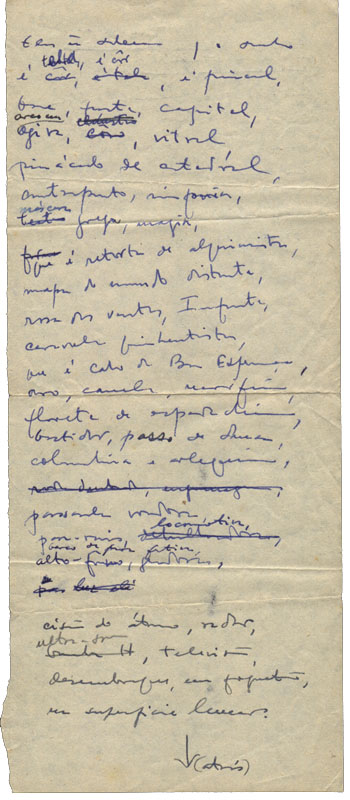 Eles não sabem que o sonho
tela, é côr
é côr, é tela, é pincel,
base, fuste, capitel,
arco em
ogiva, vitral,
pináculo de catedral,
contraponto, sinfonia,
máscara
grega, magia,
que é retorta de alquimista,
mapa do mundo distante,
rosa dos ventos, Infante,
caravela quinhentista,
que é Cabo da Boa Esperança,
ouro, canela, marfim,
florete de espadachim,
bastidor, passo de dança,
columbina e arlequim,
passarola voadora,
locomotiva,
para-raios,
barco de proa festiva,
alto-forno, geradora,
cisão do átomo, radar,
ultra-som
bomba H, televisão,
desembarque, em foguetão,
na superfície lunar.
(atrás)